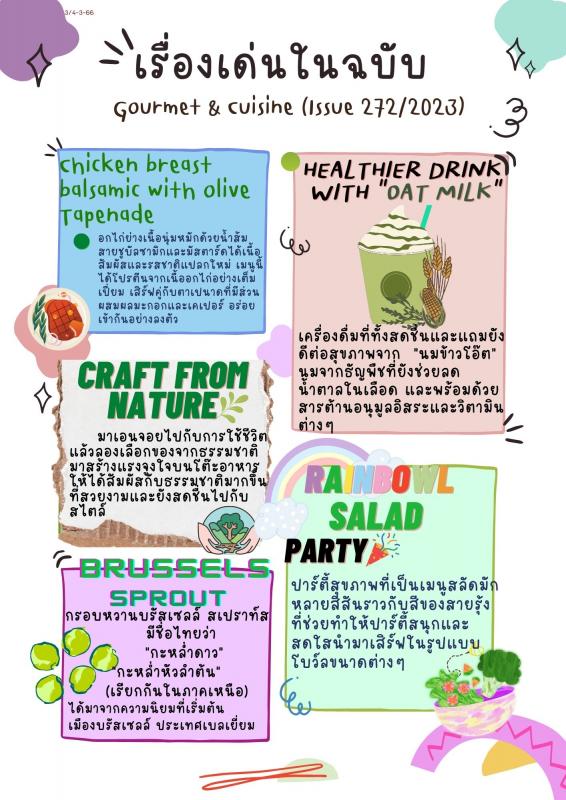 3/4-3-66
เรื่องเด่นในฉบับ
Gourmet & Cuisine (Issue 272/2023)
Chicken breast
balsamic with olive
Tapenade
อกไก่ย่างเนื้อนุ่มหมักด้วยน้ำส้ม
สายชูบัลซามิกและมัสตาร์ดได้เนื้อ
สัมผัสและรสชาติแปลกใหม่ เมนูนี้
ได้โปรตีนจากเนื้ออกไก่อย่างเต็ม
เปี่ยม เสิร์ฟคู่กับตาเปนาดที่มีส่วน
ผสมผลมะกอกและเคเปอร์ อร่อย
เข้ากันอย่างลงตัว
HEALTHIER DRINK
WITH "OAT MILK"
เครื่องดื่มที่ทั้งสดชื่นและแถมยัง
ดีต่อสุขภาพจาก "นมข้าวโอ๊ต"
นมจากธัญพืชที่ยังช่วยลด
น้ำตาลในเลือด และพร้อมด้วย
สารต้านอนุมูลอิสระและวิตามิน
ต่างๆ
CRAFT FROM
NATURE
มาเอนจอยไปกับการใช้ชีวิต
แล้วลองเลือกของจากธรรมชาติ
มาสร้างแรงจูงใจบนโต๊ะอาหาร
ให้ได้สัมผัสกับธรรมชาติมากขึ้น
ที่สวยงามและยังสดชื่นไปกับ
สไตล์
RAINBOWL
SALAD
PARTY
ปาร์ตี้สุขภาพที่เป็นเมนูสลัดผัก
หลายสีสันราวกับสีของสายรุ้ง
ที่ช่วยทำให้ปาร์ตี้สนุกและ
สดใสนำมาเสิร์ฟในรูปแบบ
โบว์ลขนาดต่างๆ
BRUSSELS
SPROUT
กรอบหวานบรัสเซลส์ สเปราท์ส
มีชื่อไทยว่า
"กะหล่ำดาว"
"กะหล่ำหัวลำต้น"
(เรียกกันในภาคเหนือ)
ได้มาจากความนิยมที่เริ่มต้น
เมืองบรัสเซลส์ ประเทศเบลเยี่ยม